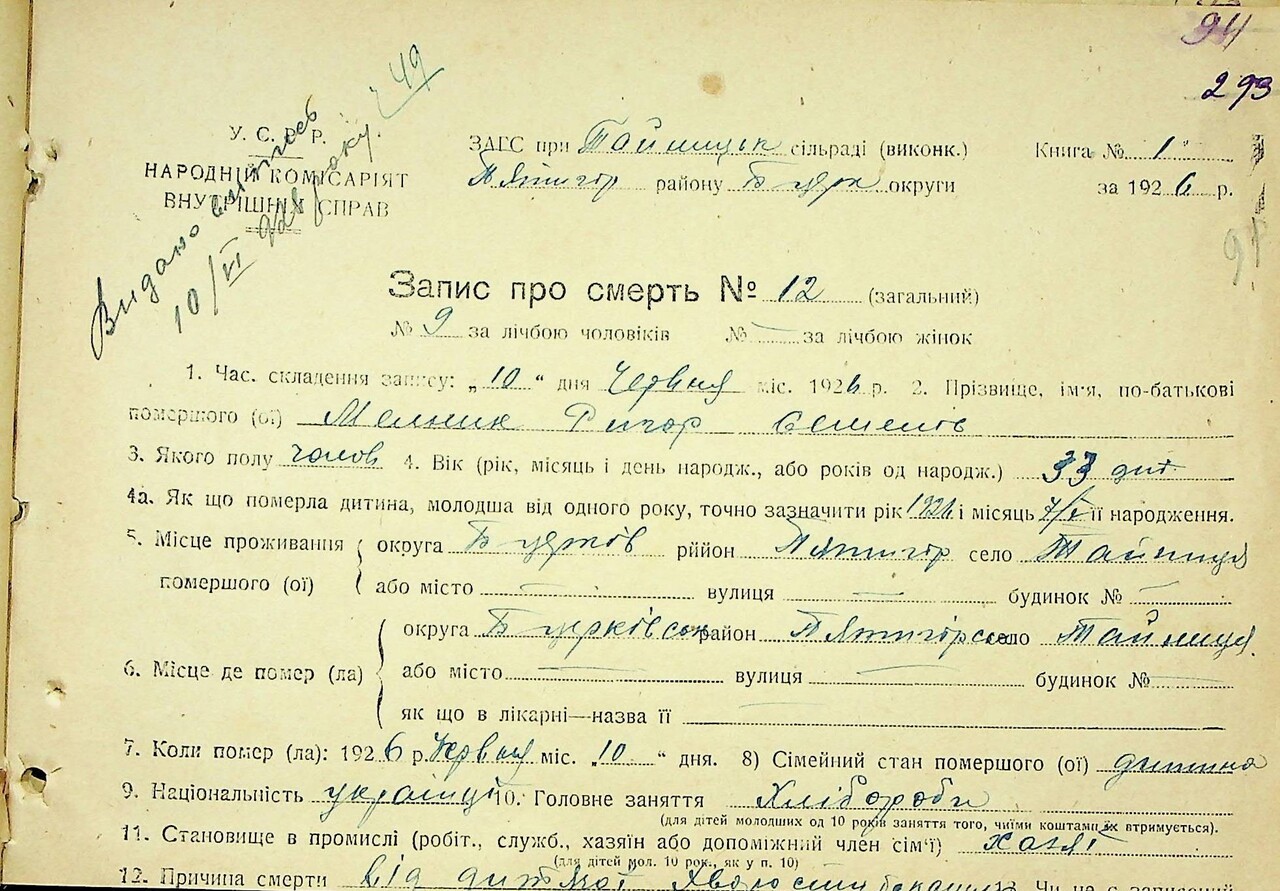 94
293
У. С. Р. Р.
НАРОДНІЙ КОМІСАРІЯТ
ВНУТРІШНІХ СПРАВ
Видано витяг
10/VI року. 49
ЗАГС при Тайницьк сільраді (виконк.) Книга № 1
Пятигор району Б. Церк округи за 1926 р.
91
Запис про смерть № 12 (загальний)
№ 9 за лічбою чоловіків № — за лічбою жінок
1. Час. складення запису: „10“ дня Червня міс. 1926 р. 2. Прізвище, ім'я, по-батькові
помершого (ої) Мельник Ригор Семенов
3. Якого полу чолов 4. Вік (рік, місяць і день народж., або років од народж.) 33 дні
4а. Як що померла дитина, молодша від одного року, точно зазначити рік 1926 і місяць 7/V її народження.
5. Місце проживання помершого (ої) округа Б Церков рййон Пятигор село Тайниця
або місто — вулиця — будинок № —
6. Місце де помер (ла) округа Б Церківськ район Пятигорсь село Тайниця.
або місто — вулиця — будинок № —
як що в лікарні—назва її
7. Коли помер (ла): 1926 р. Червня міс. „10“ дня. 8) Сімейний стан помершого (ої) дитина
9. Національність українці 10. Головне заняття Хлібороби
(для дітей молодших од 10 років заняття того, чиїми коштами їх втримується).
11. Становище в промислі (робіт., служб., хазяїн або допоміжний член сім'ї) хазяї
(для дітей мол. 10 рок., як у п. 10)
12. Причина смерти від дитячої